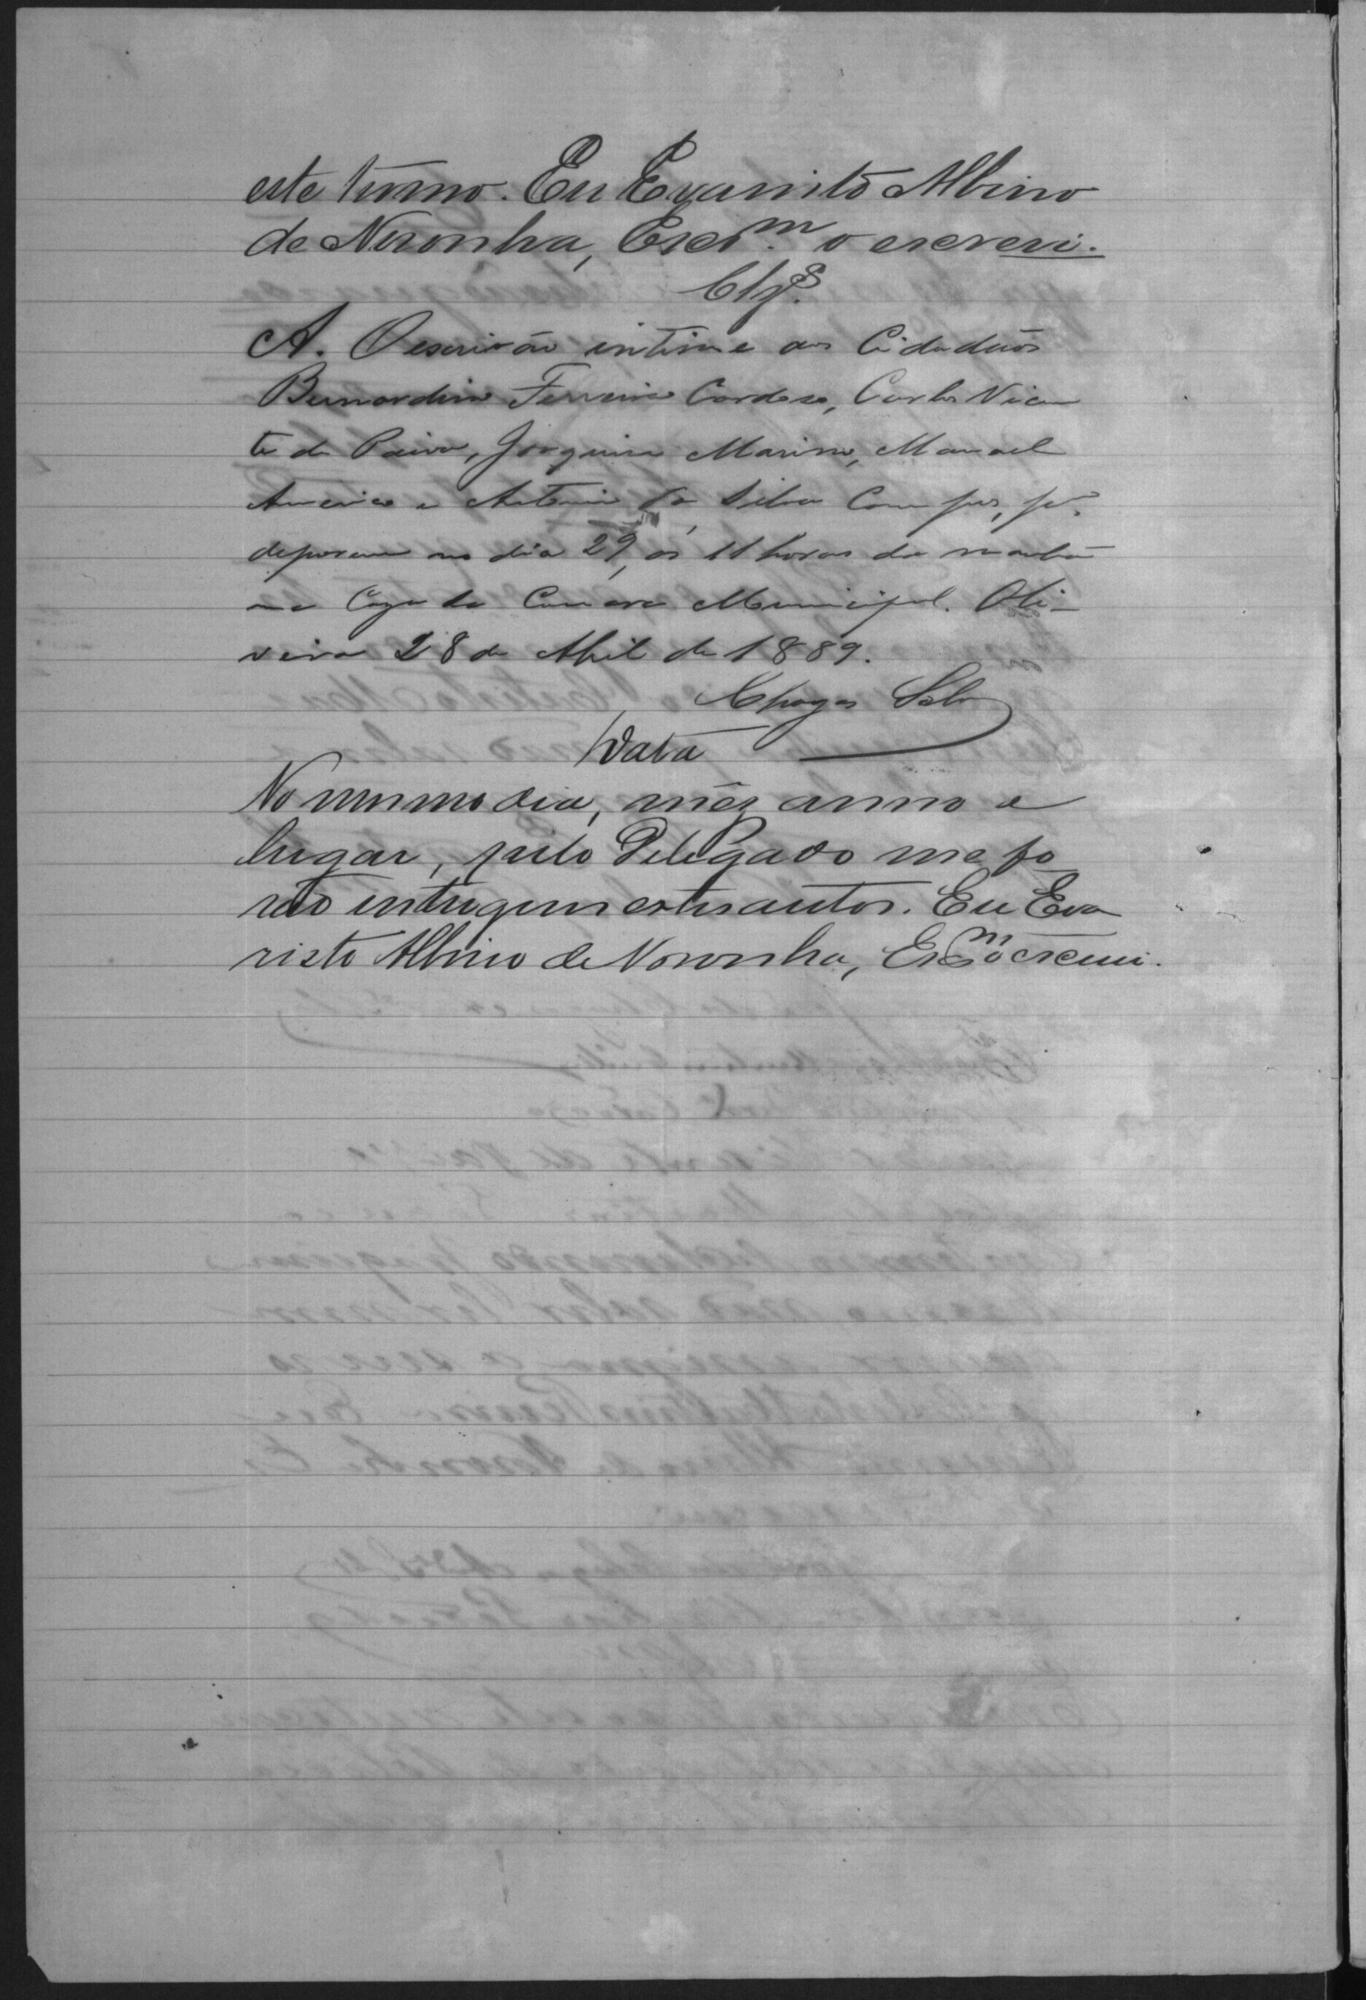 este termo. Eu Evaristo Albino
de Noronha, Escr.m o escrevi.
Clz.s
A. O escrivão intime aos Cidadãos
Bernardino Ferreira Cardoso, Carlos Vicen
te de Paiva, Joaquim Marino, Manoel
Americo e Antonio da Silva Campos, pª
deporem no dia 29, ás 11 horas da manhã
na Caza da Camara Municipal. Oli-
veira 28 de Abril de 1889.
Chagas Lobo
Data
No mesmo dia, mêz anno e
lugar, pelo Delegado me fo
rão entregues estes autos. Eu Eva
risto Albino de Noronha, Escm o escrevi.